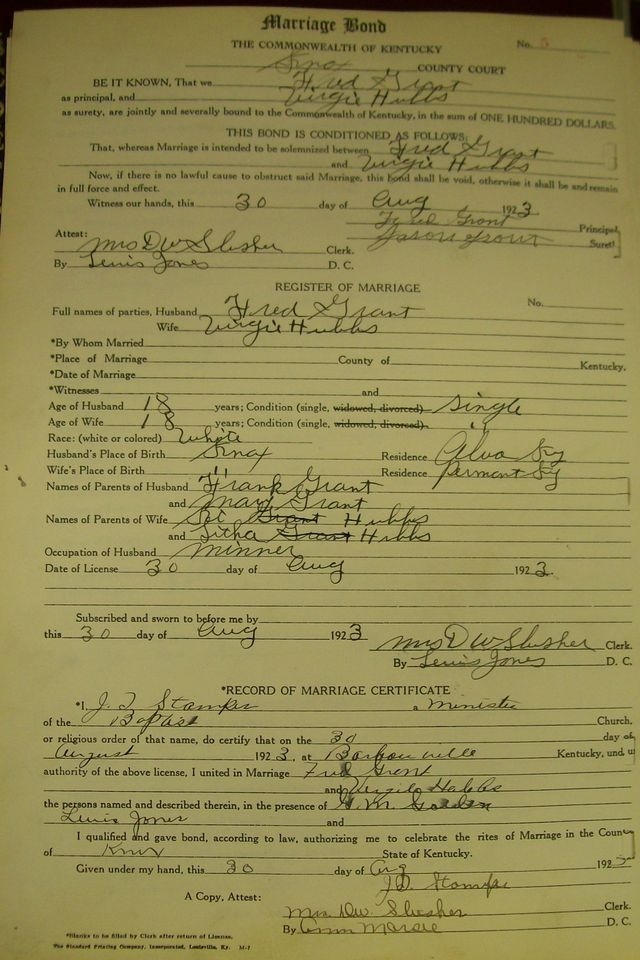 Marriage Bond
THE COMMONWEALTH OF KENTUCKY No. 5
Knox COUNTY COURT
BE IT KNOWN, That we Fred Grant
as principal, and Virgie Hubbs
as surety, are jointly and severally bound to the Commonwealth of Kentucky, in the sum of ONE HUNDRED DOLLARS.
THIS BOND IS CONDITIONED AS FOLLOWS:
That, whereas Marriage is intended to be solemnized between Fred Grant
and Virgie Hubbs
Now, if there is no lawful cause to obstruct said Marriage, this bond shall be void, otherwise it shall be and remain
in full force and effect.
Witness our hands, this 30 day of Aug 1923
Fred Grant Principal
Attest: Jason Grant Suret
Mrs D W Slusher Clerk.
By Lewis Jones D. C.
REGISTER OF MARRIAGE
Full names of parties, Husband Fred Grant No.
Wife Virgie Hubbs
*By Whom Married
*Place of Marriage County of Kentucky.
*Date of Marriage
*Witnesses and
Age of Husband 18 years; Condition (single, widowed, divorced) Single
Age of Wife 18 years; Condition (single, widowed, divorced) "
Race: (white or colored) White
Husband's Place of Birth Knox Residence Alva Ky
Wife's Place of Birth " Residence Permont Ky
Names of Parents of Husband Frank Grant
and Mary Grant
Names of Parents of Wife Grant Hubbs
and Litha Grant Hubbs
Occupation of Husband Minner
Date of License 30 day of Aug 1923.
Subscribed and sworn to before me by
this 30 day of Aug 1923
Mrs D W Slusher Clerk.
By Lewis Jones D. C.
*RECORD OF MARRIAGE CERTIFICATE
*I, J. T. Stamper a Minister
of the Baptist Church,
or religious order of that name, do certify that on the 30 day of
August 1923, at Barbourville Kentucky, und u
authority of the above license, I united in Marriage Fred Grant
and Virgie Hobbs
the persons named and described therein, in the presence of M. Golden
Lewis Jones and
I qualified and gave bond, according to law, authorizing me to celebrate the rites of Marriage in the Coun
of Knox State of Kentucky.
Given under my hand, this 30 day of Aug 192
J. T. Stamper
A Copy, Attest:
Mrs. D W Slusher Clerk.
By D. C.
*Blanks to be filled by Clerk after return of License.
The Standard Printing Company, Incorporated, Louisville, Ky. M-7